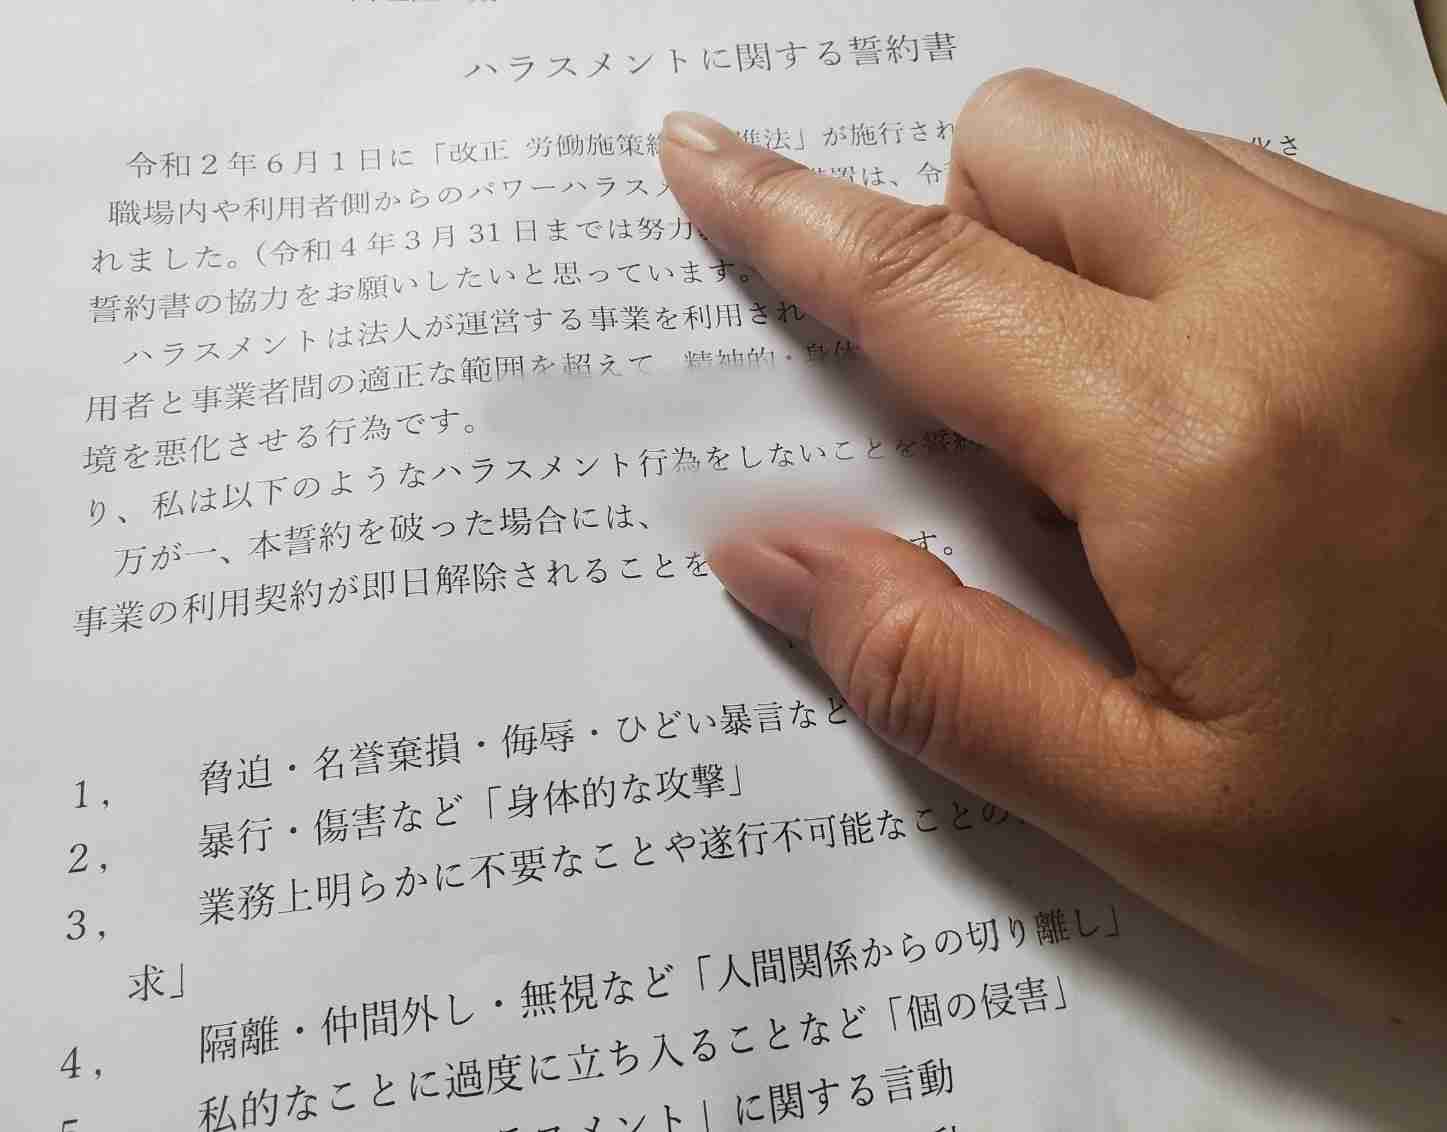 ハラスメントに関する誓約書
令和２年６月１日に「改正 労働施策 進法」が施行され 化さ
職場内や利用者側からのパワーハラスメ 置は、令
れました。（令和４年３月 31 日までは努力
誓約書の協力をお願いしたいと思っています。
ハラスメントは法人が運営する事業を利用され
用者と事業者間の適正な範囲を超えて、精神的・身体
境を悪化させる行為です。
り、私は以下のようなハラスメント行為をしないことを誓約
万が一、本誓約を破った場合には、
事業の利用契約が即日解除されることを す。
1, 脅迫・名誉棄損・侮辱・ひどい暴言など
2, 暴行・傷害など「身体的な攻撃」
3, 業務上明らかに不要なことや遂行不可能なことの
求」
4, 隔離・仲間外し・無視など「人間関係からの切り離し」
私的なことに過度に立ち入ることなど「個の侵害」
ラスメント」に関する言動